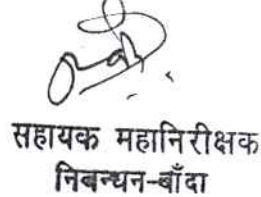 सहायक महानिरीक्षक
निबन्धन-बाँदा